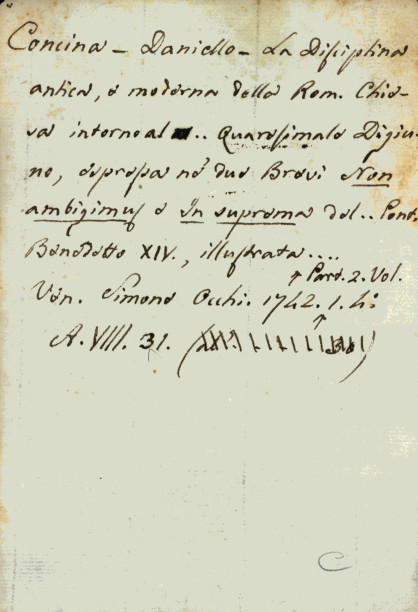 Concina – Daniello – La Disciplina
antica, e moderna della Rom. Chie-
sa intorno al .. Quaresimale Digiu-
no, espressa ne' due Brevi Non
ambigimus e In suprema del .. Pont.
Benedetto XIV., illustrata ....
Part. 2. Vol.
Ven. Simone Occhi. 1742. 1. 4°
A. VIII. 31.
C